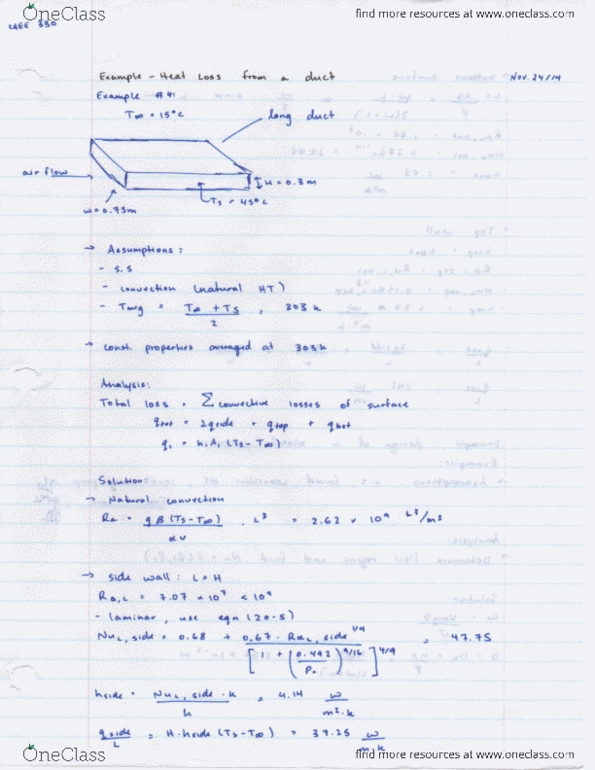 OneClass
find more resources at www.oneclass.com
CHEE 330
Example - Heat Loss from a duct
Nov. 24/14
Example #4:
T∞ = 15°C
long duct
air flow
H = 0.3m
w = 0.75m
Ts = 45°C
→ Assumptions:
- s.s
- convection (natural HT)
- Tavg = T∞ + Ts / 2 = 303 k
→ const. properties averaged at 303k
Analysis:
Total loss = Σ convective losses of surface
qtot = 2qside + qtop + qbot
qi = hiAi (Ts - T∞)
Solution:
→ Natural convection
Ra = gβ(Ts - T∞) / αν · L³ = 2.62 × 10⁹ L³/m³
→ side wall: L = H
Ra,L = 7.07 × 10⁷ < 10⁹
- laminar, use eqn (20-5)
NuL,side = 0.68 + 0.67 · RaL,side^1/4 / [1 + (0.492/Pr)^9/16]^4/9 = 47.75
hside = NuL,side · k / h = 4.14 w/m²·k
qside/L = H · hside (Ts - T∞) = 37.25 w/m
OneClass
find more resources at www.oneclass.com